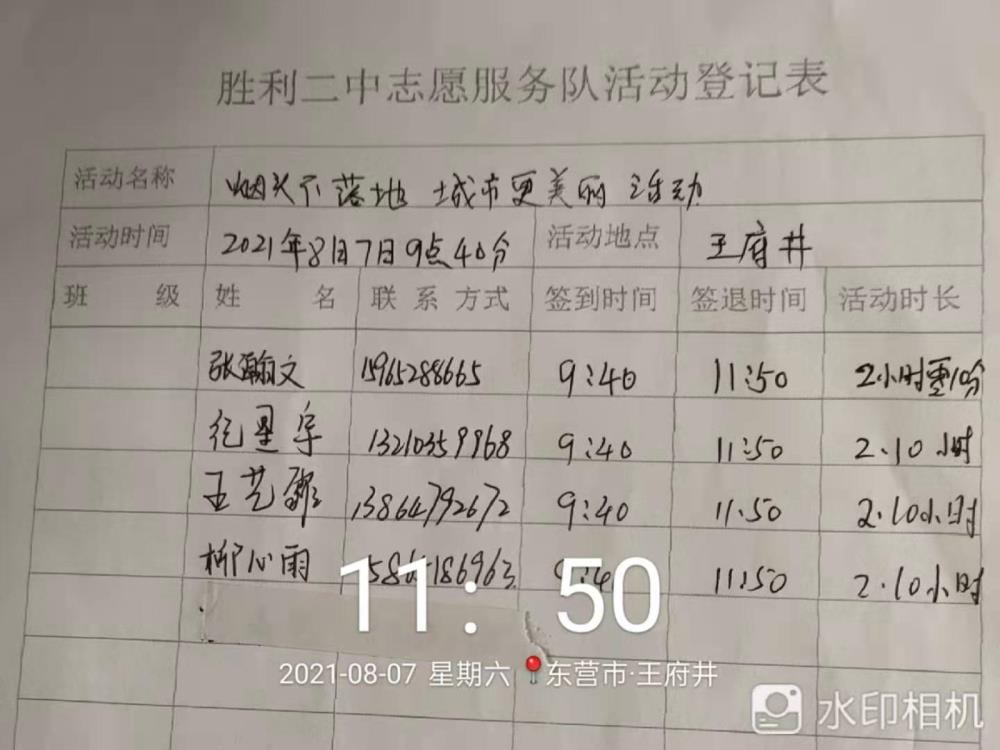 胜利二中志愿服务队活动登记表
活动名称 烟头不落地 城市更美丽 活动
活动时间 2021年8月7日9点40分 活动地点 王府井
班 级 姓 名 联系方式 签到时间 签退时间 活动时长
张瀚文 15965288665 9:40 11:50 2小时零10分
纪星宇 13210359968 9:40 11:50 2.10小时
王艺 13864792672 9:40 11:50 2.10小时
柳心雨 11:50 2.10小时
11:50
2021-08-07 星期六 东营市·王府井
水印相机